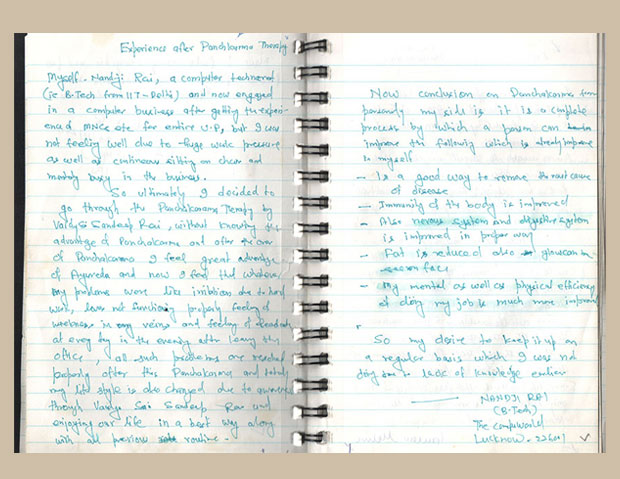 Experience after Panchkarma Therapy
Myself - Nandji Rai, a computer technocrat
(ie B.Tech from IIT-Delhi) and now engaged
in a computer business after getting the experi-
ence MNCs etc for entire U.P, but I was
not feeling well due to huge work pressure
as well as continuous sitting on chair and
mentaly busy in the business.
So ultimately I decided to
go through the Panchakarma Therapy by
Vaidya Sandeep Rai, without knowing the
advantage of Panchakarma and after over
of Panchakarma I feel great advantage
of Ayurveda and now I feel that whatever
my problems were like irritation due to hard
work, liver not functioning properly feeling of
weakness in my veins and feeling of
at every day in the evening after leaving the
office. all such problems are
properly after this Panchakarma and totaly
my life style is also changed due to
through Vaidya Sandeep Rai and
enjoying our life in a best way along
with all previous routine.
Now conclusion on Panchakarma from
my side is it is a complete
process by which a person can
improve the following which is already improve
in myself
- Is a good way to remove the root cause
of disease
- Immunity of the body is improved
- Also nervous system and digestive system
is improved in proper way
- Fat is reduced also glow can
face
- My mental as well as physical efficiency
of doing my job is much more improve
So my desire to keep it up on
a regular basis which I was not
doing due to lack of knowledge earlier
NANDJI RAI
(B-Tech)
The compuworld
Lucknow. 226001